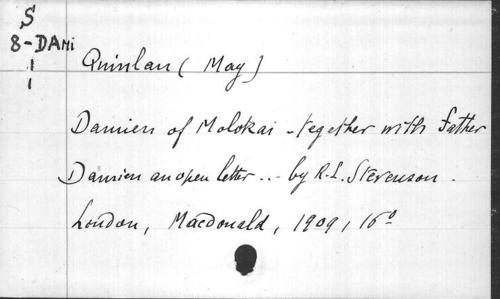 S
8-DAMi
1
1
Quinlan (May)
Damien of Molokai - together with Father
Damien an open letter ... by R.L. Stevenson.
London, Macdonald, 1909, 16º